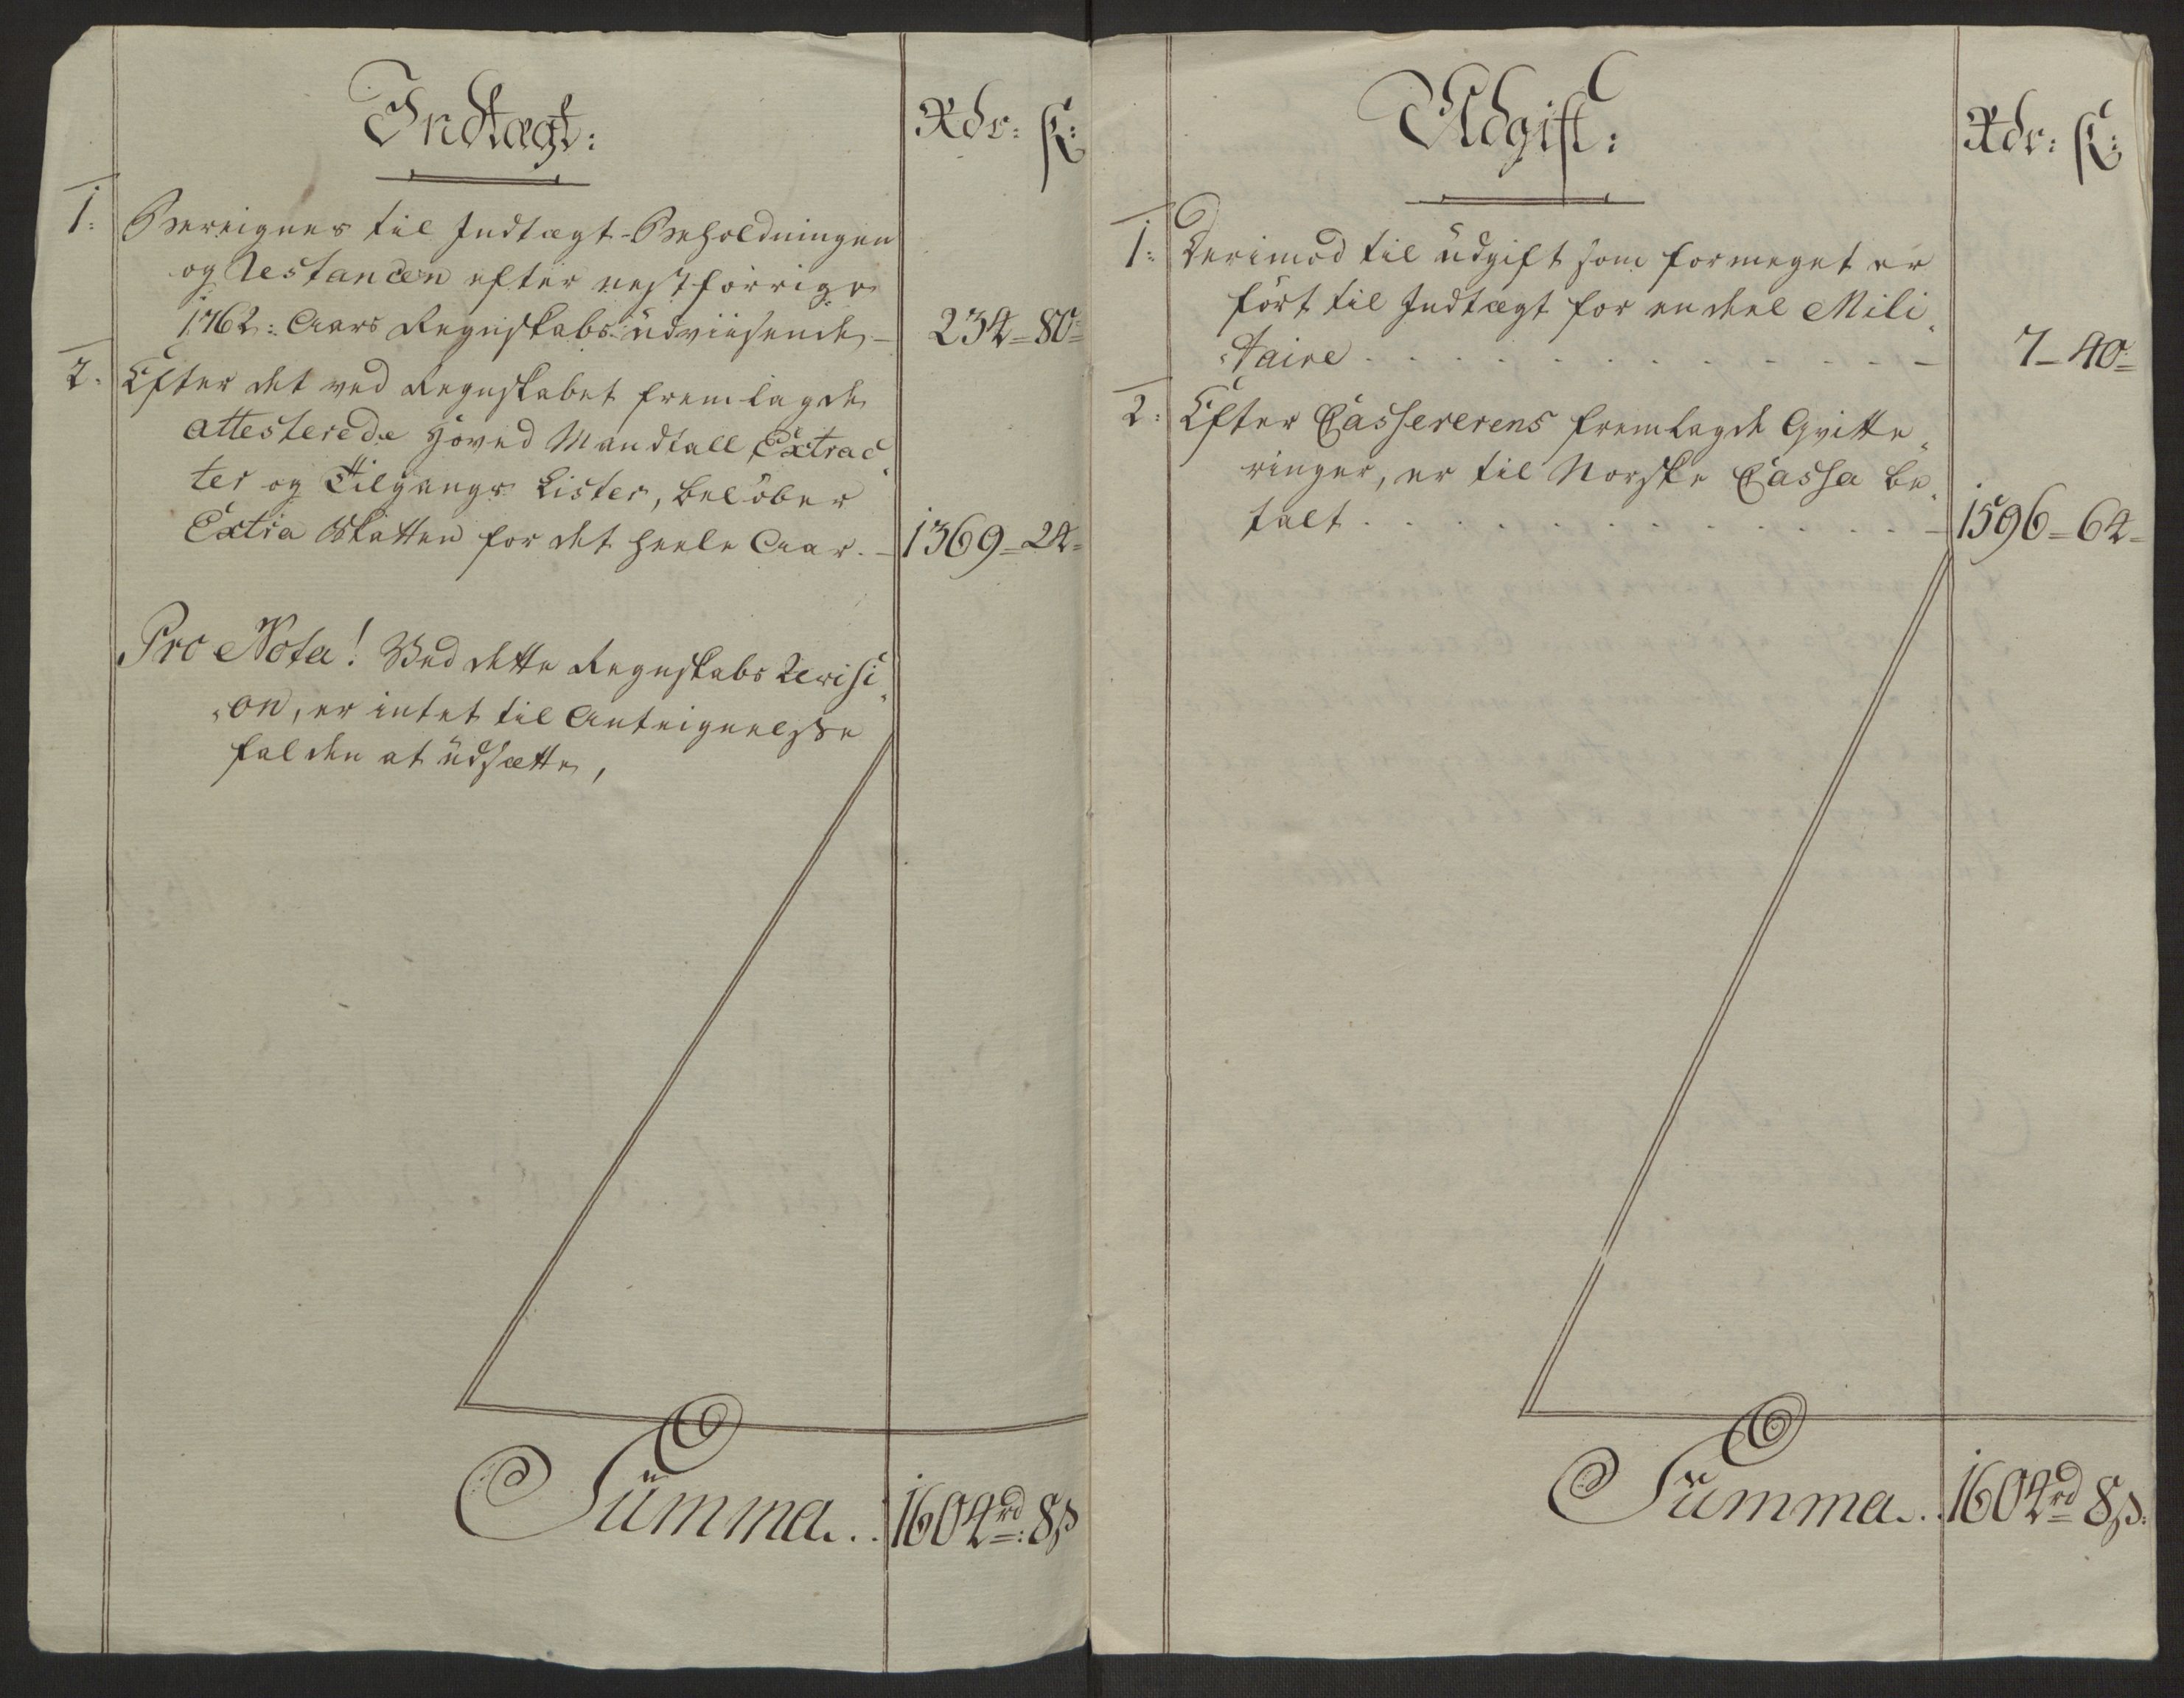 Indtægt:
Rdr: ß:
1: Bereignes til Indtægt-Beholdningen
og Restancen efter nestforrige
1762: Aars Regnskabs udviisende - 234=80=
2. Efter det ved Regnskabet fremlagde
attesterede Hoved Mandtall, Extrac
ter og Tilgangs Lister, beløber
Extra Skatten for det heele Aar. - 1369=24=
Pro Nota! Ved dette Regnskabs Revisi
on, er intet til Anteignelsse
falden at udsætte,
Summa.. 1604rd: 8ß
Udgift:
Rdr: ß:
1: Derimod til udgift som formeget er
ført til Indtægt for en deel Mili
taire . . . . . . . . . . . - 7-40=
2: Efter Casserenens fremlagde Qvitte
ringer, er til Norske Cassa be
talt . . . . . . . . . . . - 1596=64=
Summa.. 1604rd 8ß.